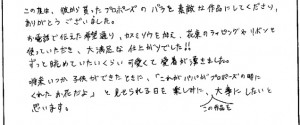 この度は、彼から貰ったプロポーズのバラを素敵な作品にしてくださり、
ありがとうございました。
お電話で伝えた希望通り、カスミソウを加え、花束のラッピングやリボンも
使っていただき、大満足な仕上がりでした!!
ずっと眺めていたいくらい可愛くて愛着が湧きました。
将来いつか子供ができたときに、「これがパパがプロポーズの時に
くれたお花だよ」と見せられる日を楽しみに、大事にしたいと
この作品を
思います。